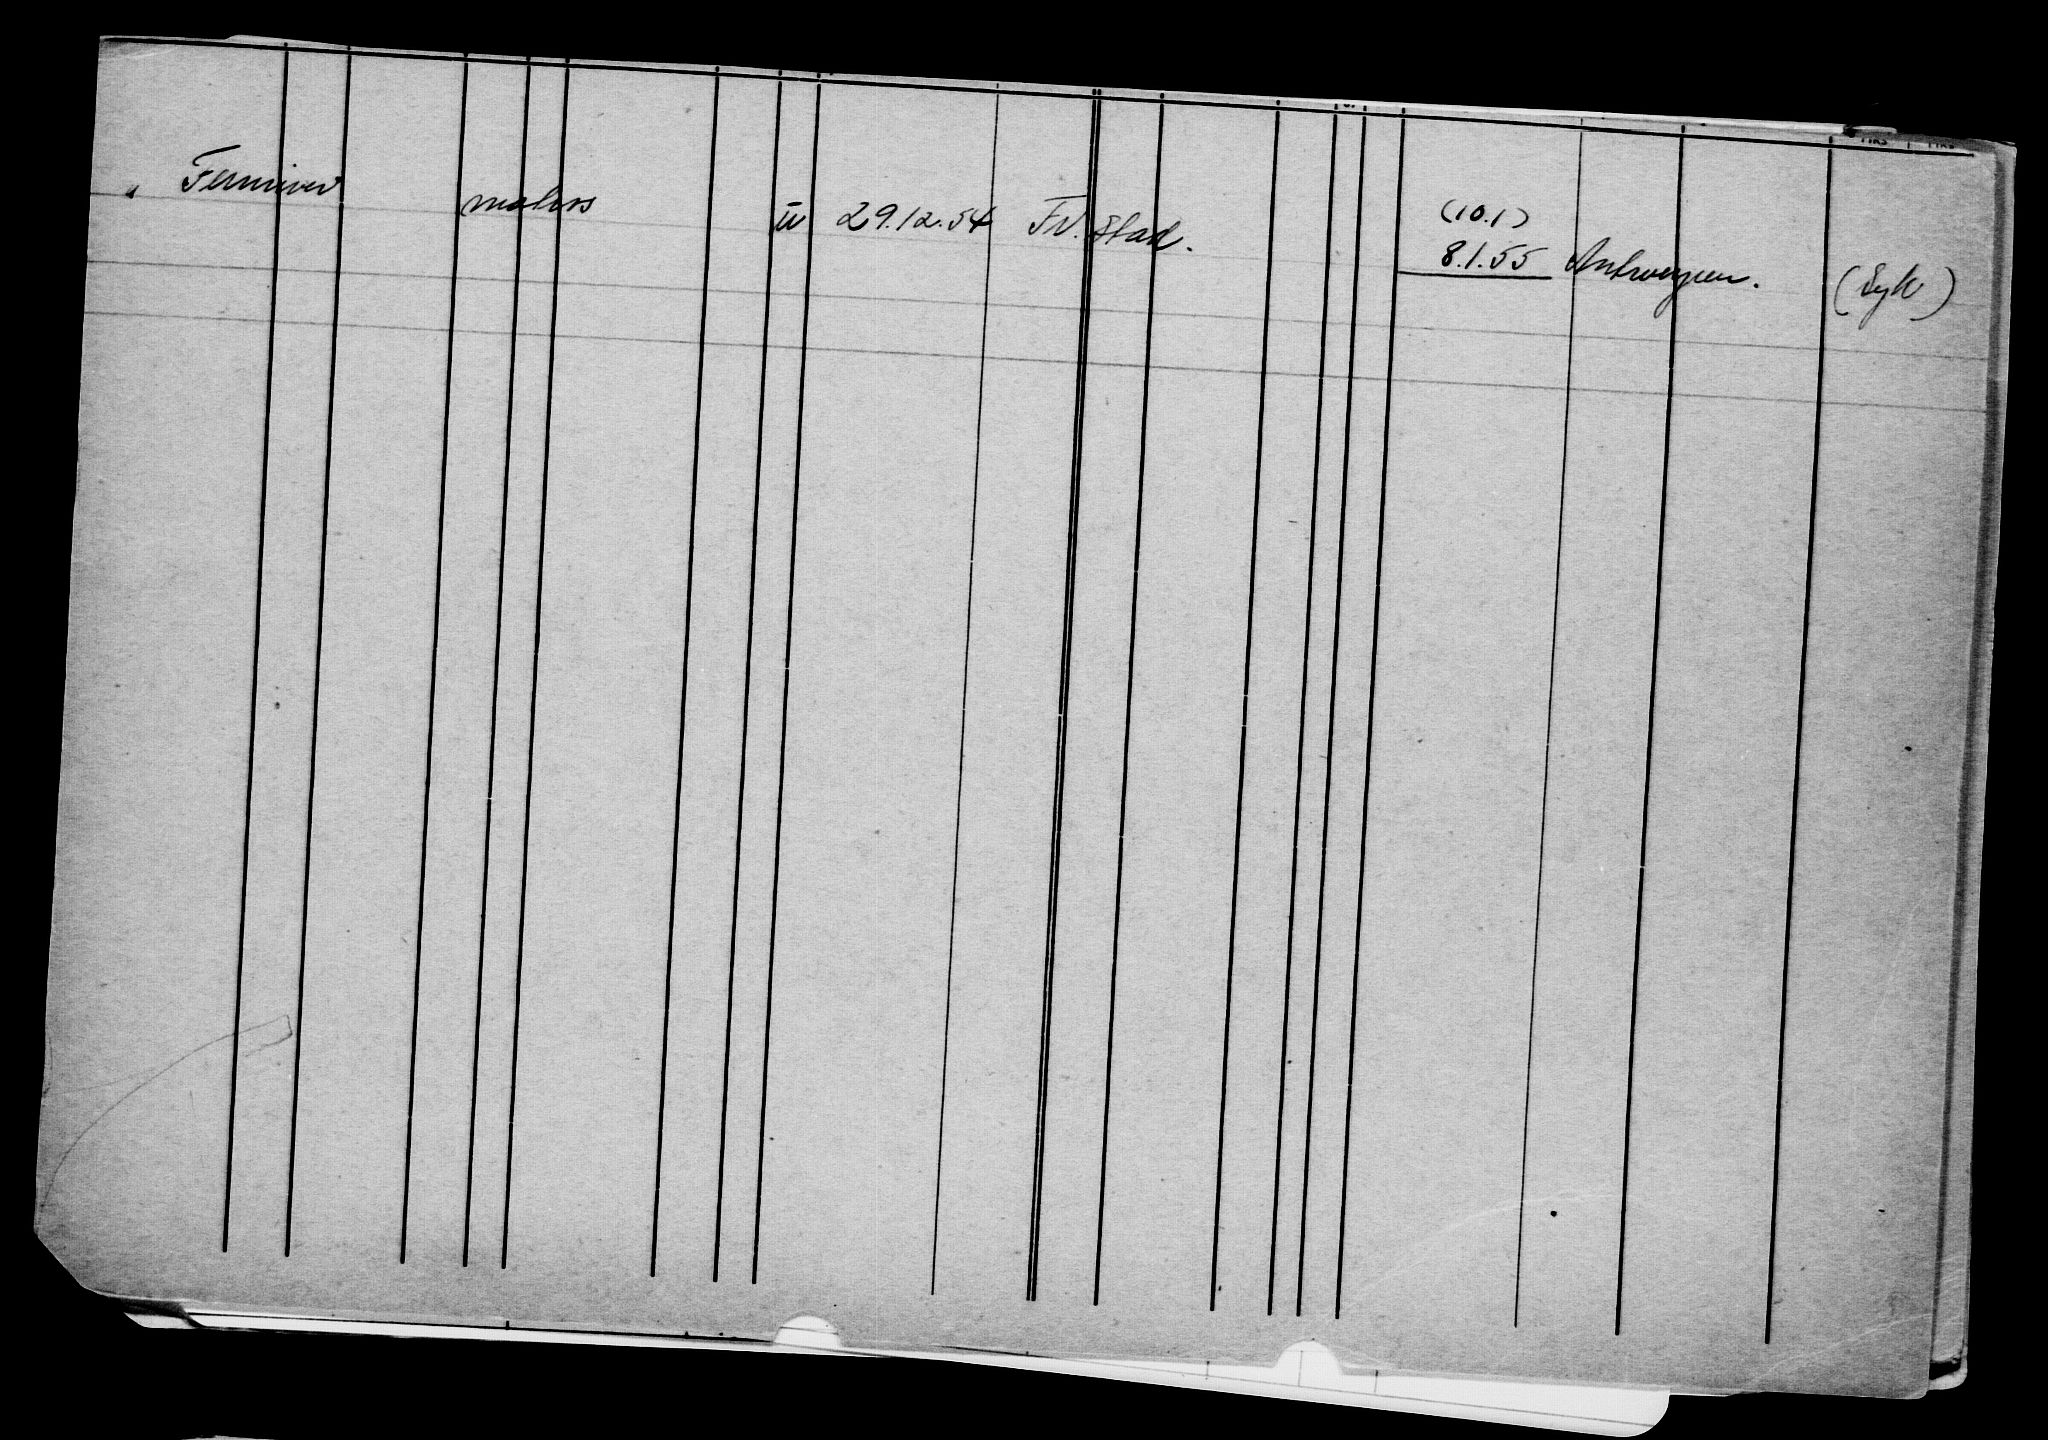 " Fernriver matros u 29.12.54 Fr.stad. (10.1)
8.1.55 Antwerpen. (Syk)